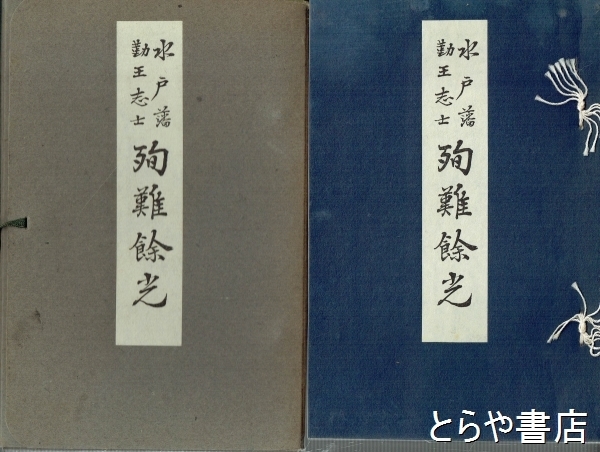 水戸藩
勤王志士
殉難餘光
水戸藩
勤王志士
殉難餘光
とらや書店